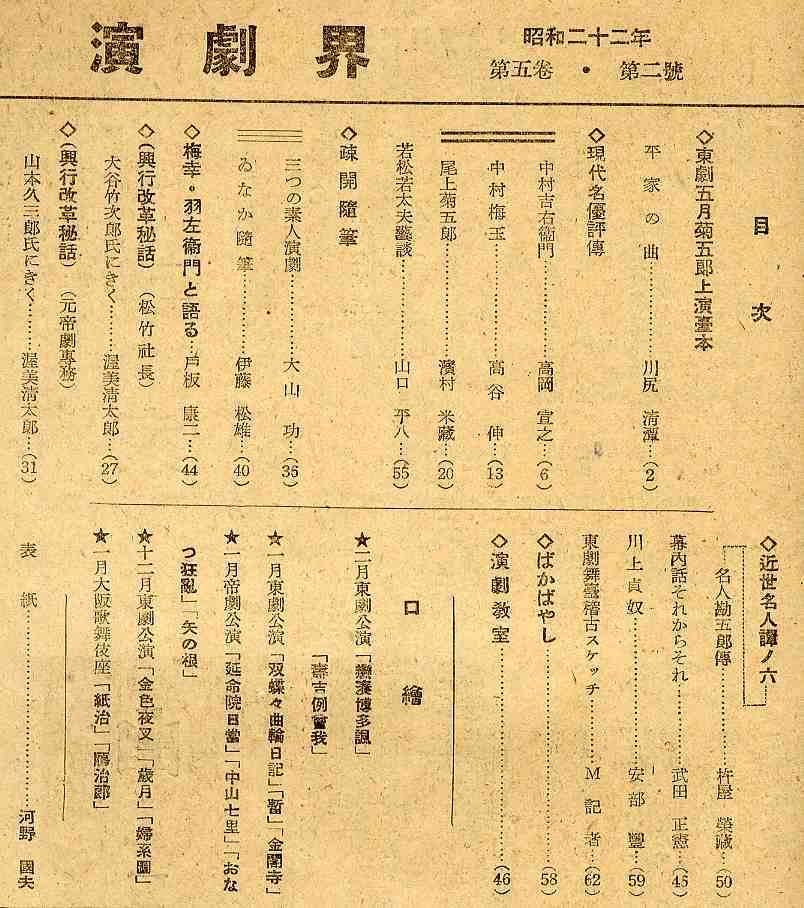 演劇界
昭和二十二年
第五卷・第二號
目次
◇東劇五月菊五郎上演臺本
平家の曲………川尻 清潭…(2)
◇現代名優評傳
中村吉右衞門………高岡 宣之…(6)
中村梅玉………高谷 伸…(13)
尾上菊五郎………濱村 米藏…(20)
若松若太夫藝談………山口 平八…(55)
◇疎開隨筆
三つの素人演劇………大山 功…(36)
ゐなか隨筆………伊藤 松雄…(40)
◇梅幸・羽左衞門と語る…戸板 康二…(44)
◇(興行改革秘話)(松竹社長)
大谷竹次郎氏にきく………渥美清太郎…(27)
◇(興行改革秘話)(元帝劇專務)
山本久三郎氏にきく………渥美清太郎…(31)
◇近世名人譚ノ六
名人勘五郎傳………杵屋 榮藏…(50)
幕内話それからそれ………武田 正憲…(48)
川上貞奴………安部 豐…(59)
東劇舞臺稽古スケッチ………M記者…(62)
◇ばかばやし………(58)
◇演劇教室………(46)
口繪
★二月東劇公演「戀湊博多諷」
「壽吉例曾我」
★一月東劇公演「双蝶々曲輪日記」「暫」「金閣寺」
★一月帝劇公演「延命院日當」「中山七里」「おな
つ狂亂」「矢の根」
★十二月東劇公演「金色夜叉」「歳月」「婦系圖」
★一月大阪歌舞伎座「紙治」「鴈治郎」
表紙………河野 國夫